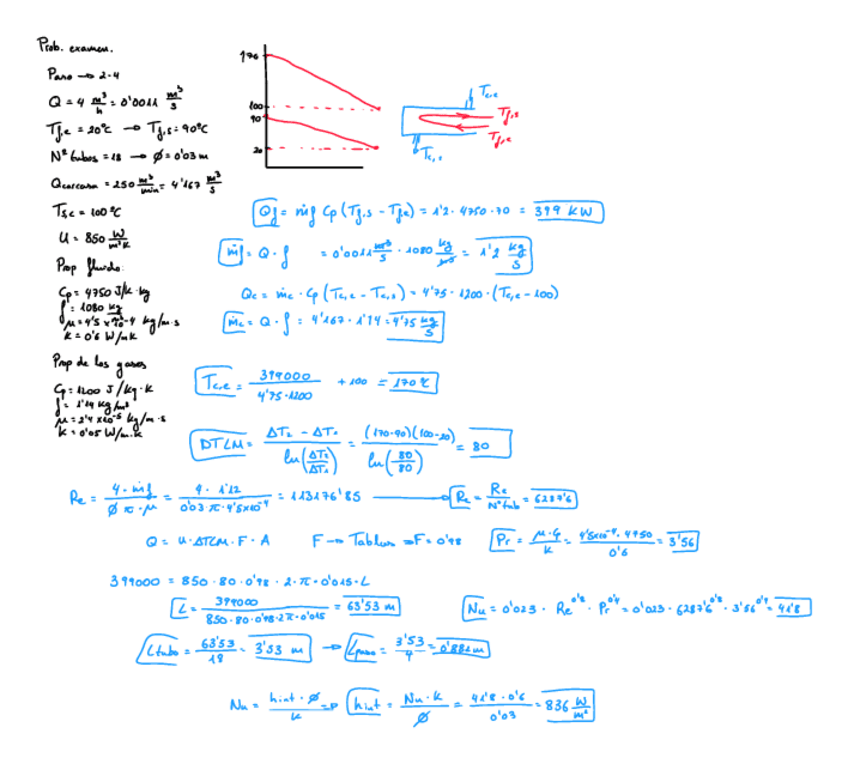 Prob. examen.
Paso → 2-4
Q = 4 m³/h = 0'0011 m³/s
Tf,e = 20°C → Tf,s = 90°C
Nº tubos = 18 → Ø = 0'03 m
Qcarcasa = 250 m³/min = 4'167 m³/s
Ts,c = 100 °C
U = 850 W/m²K
Prop fluido:
Cp = 4750 J/k·kg
ρ = 1080 kg/m³
μ = 4'5 x10⁻4 kg/m·s
k = 0'6 W/mk
Prop de los gases
Cp = 1200 J/kg·K
ρ = 1'14 kg/m³
μ = 2'4 x10⁻5 kg/m·s
k = 0'05 W/m·k
170
100
90
20
Tc,e
Tf,s
Tf,e
Tc,s
Qf = ṁf Cp (Tf,s - Tf,e) = 1'2 · 4750 · 70 = 399 KW
ṁf = Q · ρ = 0'0011 m³/s · 1080 kg/m³ = 1'2 kg/s
Qc = ṁc · Cp (Tc,e - Tc,s) = 4'75 · 1200 · (Tc,e - 100)
ṁc = Q · ρ = 4'167 · 1'14 = 4'75 kg/s
Tc,e = 399000 / 4'75·1200 + 100 = 170 °C
DTLM = ΔT2 - ΔT1 / ln(ΔT2/ΔT1) = (170-90)(100-20) / ln(80/80) = 80
Re = 4 · ṁf / Ø π · μ = 4 · 1'12 / 0'03 π · 4'5x10⁻4 = 113176'85 → Re = Re / Nºtub = 6287'6
Q = U · DTLM · F · A F → Tablas ⇒ F = 0'98 Pr = μ·Cp / k = 4'5x10⁻4 · 4750 / 0'6 = 3'56
399000 = 850 · 80 · 0'98 · 2 · π · 0'015 · L
L = 399000 / 850 · 80 · 0'98 · 2π · 0'015 = 63'53 m Nu = 0'023 · Re^0'8 · Pr^0'4 = 0'023 · 6287'6^0'8 · 3'56^0'4 = 41'8
Ltubo = 63'53 / 18 = 3'53 m → Lpaso = 3'53 / 4 = 0'882 m
Nu = hint · Ø / k ⇒ hint = Nu · k / Ø = 41'8 · 0'6 / 0'03 = 836 W/m²